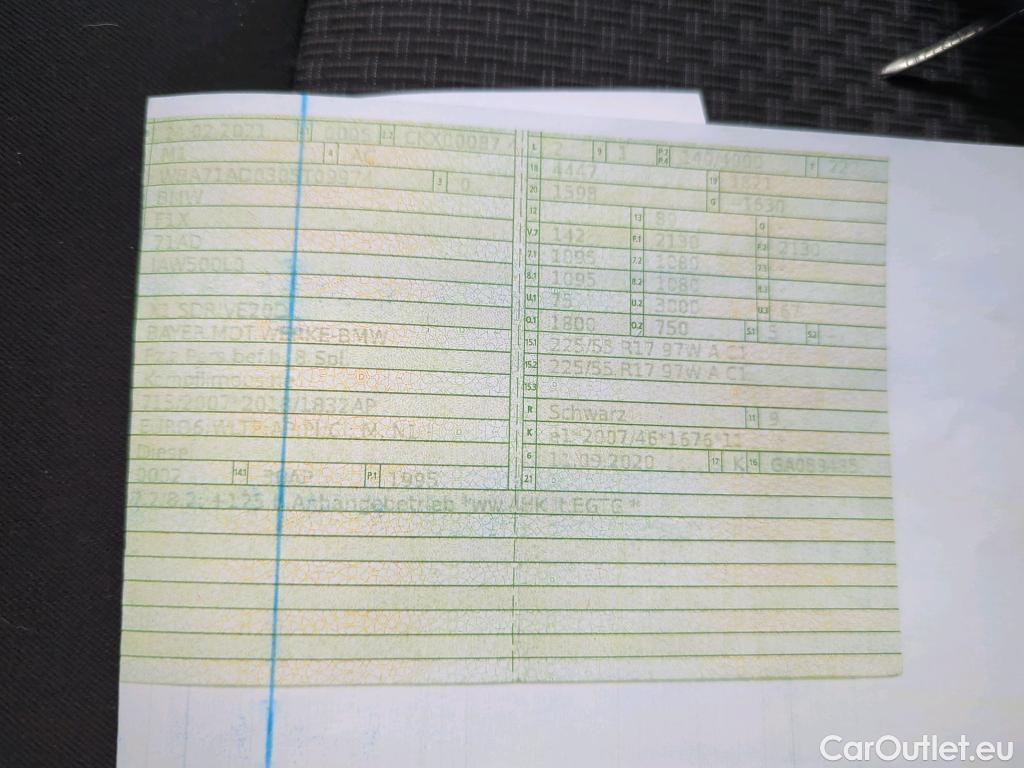 02.2021 0005 CKX00087
M1 4 AC
3 0
BMW
F1X
71AD
BAYER.MOT.WERKE-BMW
Fz.z.Pers.bef.b. 8 Spl.
Kombilimousine
715/2007*2018/1832AP
Diesel
0002 14.1 36AP P.1 1995
Anhängebetrieb *ww.AHK
L 2 9 1 P.2 P.4 140/4000 T 22
18 4447 19 1821
20 1598 G 1630
12 13 80 Q
V.7 142 F.1 2130 F.2 2130
7.1 1095 7.2 1080 7.3
8.1 1095 8.2 1080 8.3
U.1 75 U.2 3000 U.3 67
O.1 1800 O.2 750 S.1 5 S.2
15.1 225/55 R17 97W A C1
15.2 225/55 R17 97W A C1
15.3
R Schwarz 11 9
K e1*2007/46*1676*11
6 11.09.2020 17 K 16
21
CarOutlet.eu